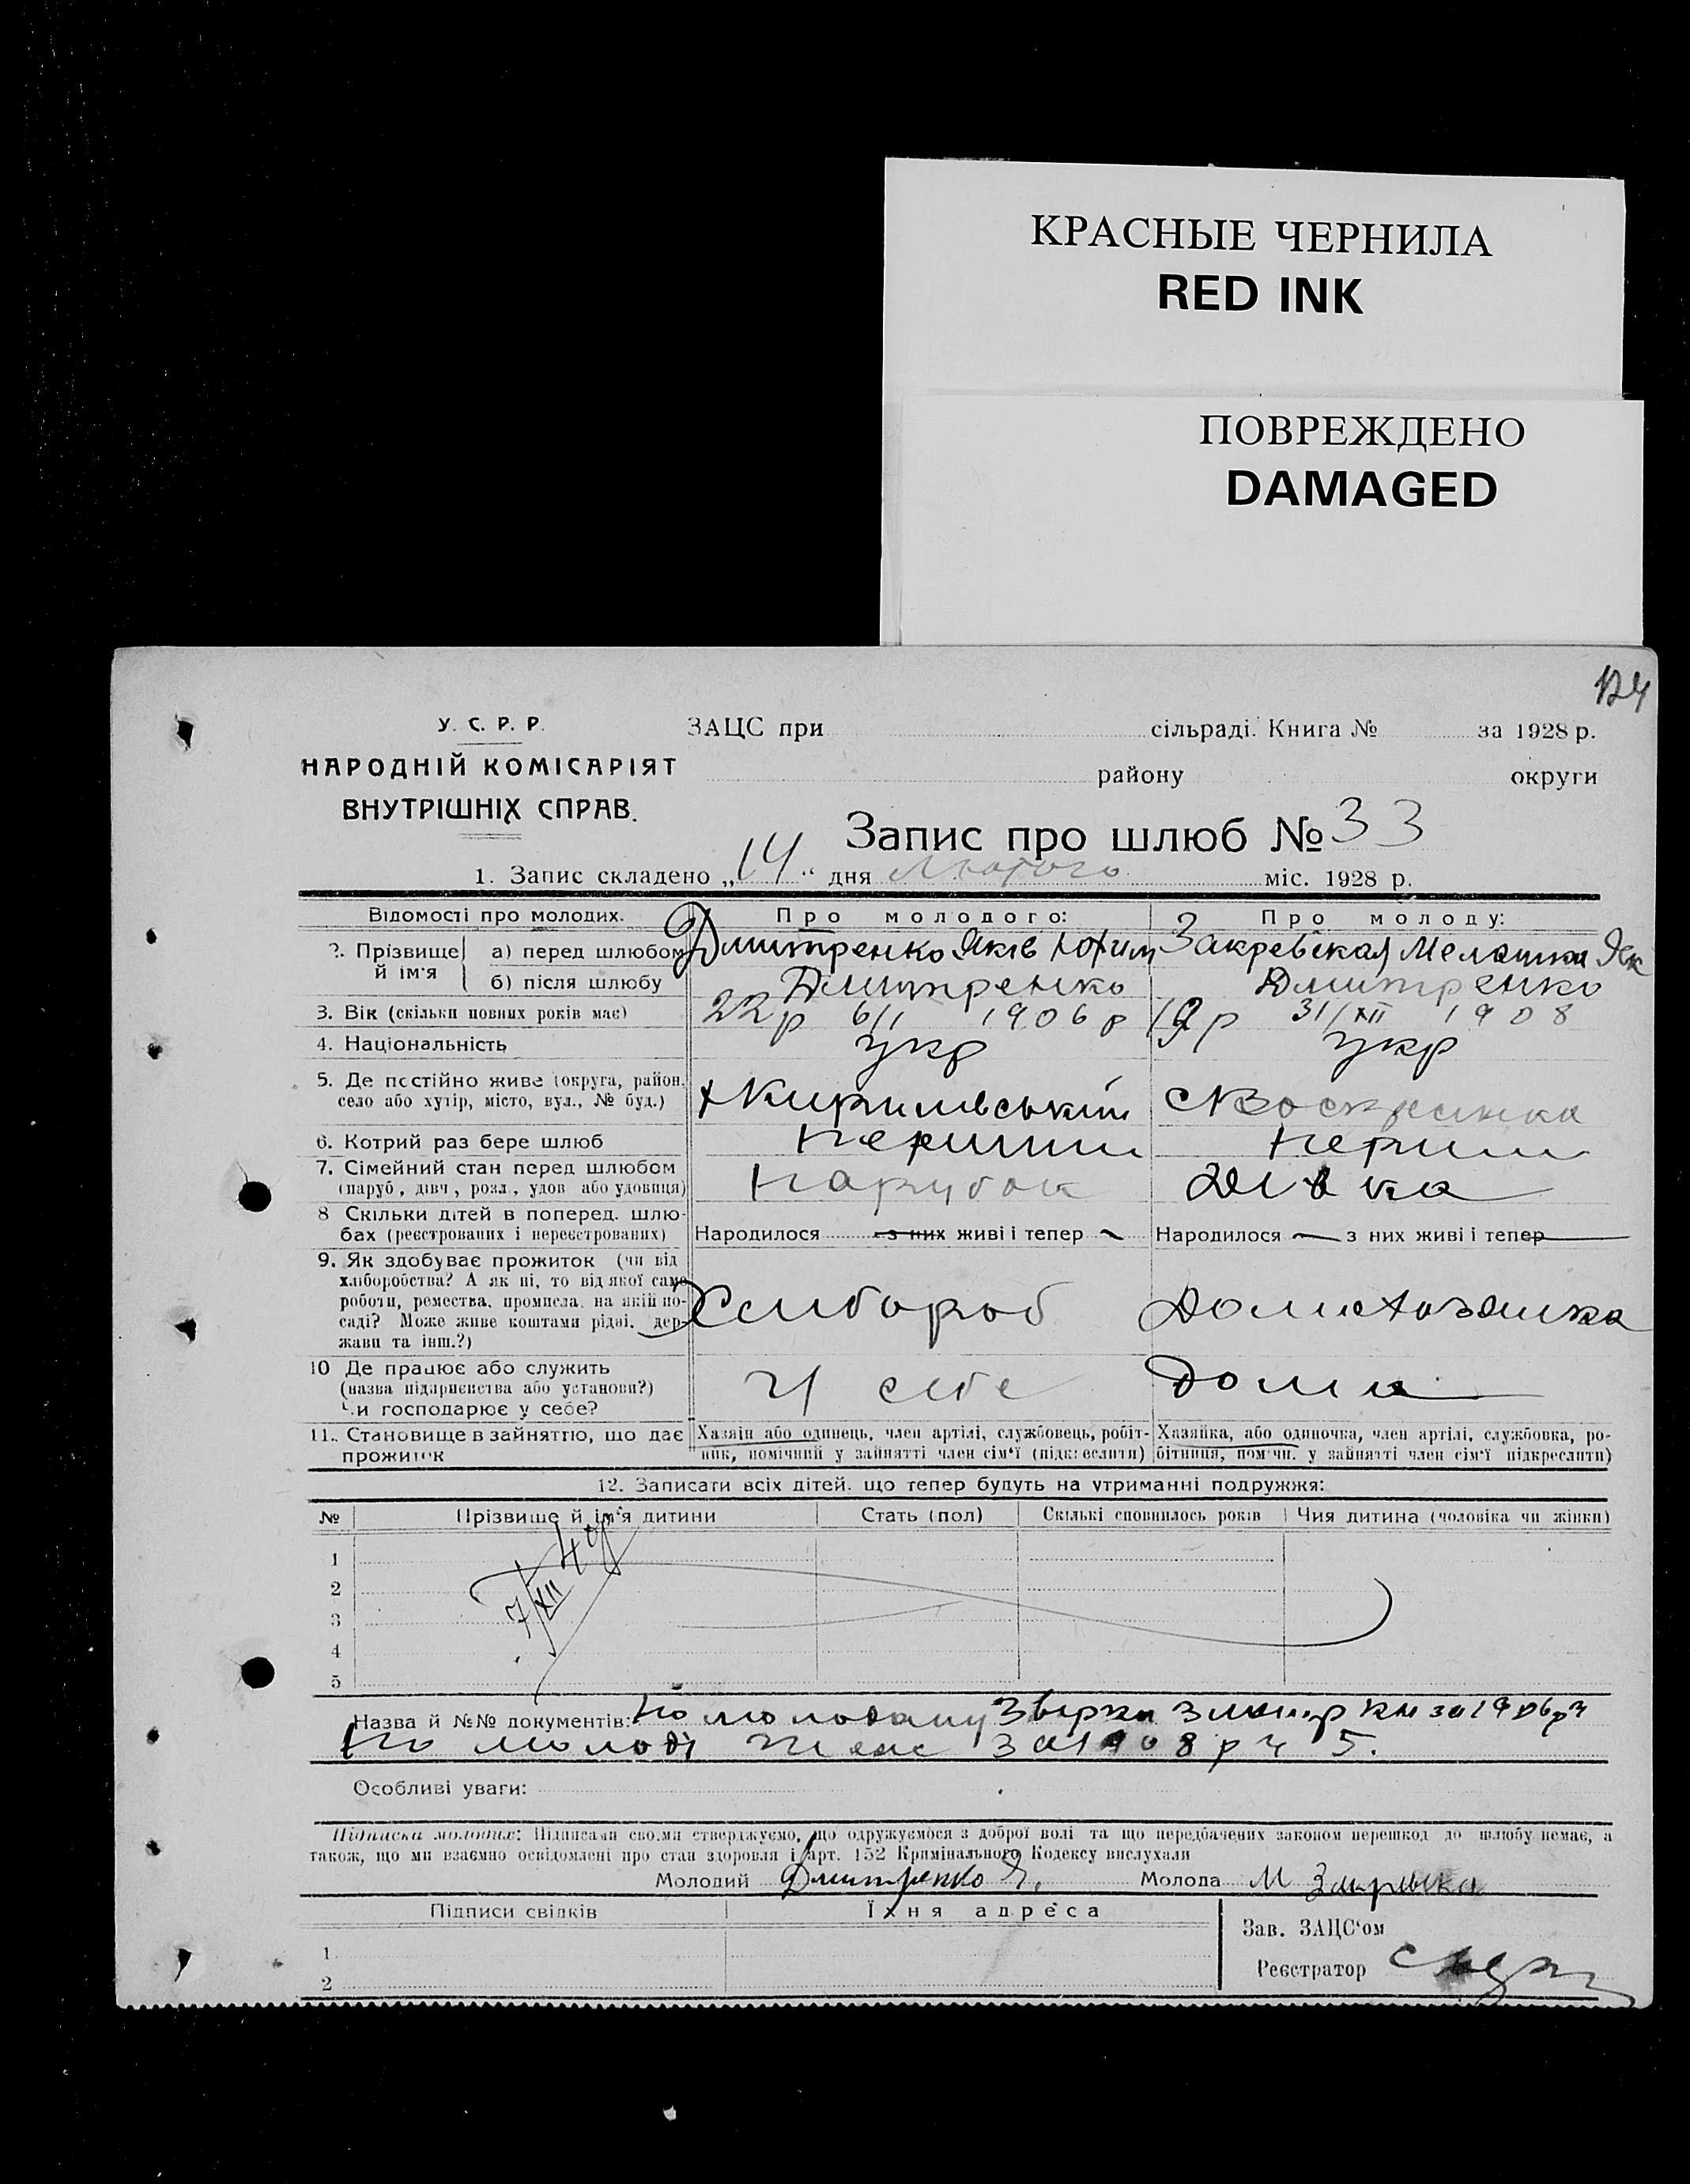 КРАСНЫЕ ЧЕРНИЛА
RED INK
ПОВРЕЖДЕНО
DAMAGED
У. С. Р. Р.
НАРОДНІЙ КОМІСАРІЯТ
ВНУТРІШНІХ СПРАВ.
ЗАЦС при сільраді. Книга № за 1928 р.
району округи
Запис про шлюб № 33
1. Запис складено „14“ дня Лютого міс. 1928 р.
Відомості про молодих. Про молодого: Про молоду:
2. Прізвище й ім'я а) перед шлюбом Дмитренко Яків Юхим Закревская Мелашка Як
б) після шлюбу Дмитренко Дмитренко
3. Вік (скільки повних років має) 22 р 6/I 1906 р 19 р 31/XII 1908
4. Національність укр укр
5. Де постійно живе (округа, район, село або хутір, місто, вул., № буд.) х Кирилівський с Воскресинка
6. Котрий раз бере шлюб перший перший
7. Сімейний стан перед шлюбом (паруб., дівч., розл., удов. або удовиця) парубок дівка
8 Скільки дітей в поперед. шлюбах (реєстрованих і нереєстрованих) Народилося з них живі і тепер Народилося з них живі і тепер
9. Як здобуває прожиток (чи від хліборобства? А як ні, то від якої саме роботи, ремества, промисла, на якій посаді? Може живе коштами рідні, держави та інш.?) Хлибороб
10 Де працює або служить (назва підприємства або установи?) Чи господарює у себе? У себе дома
11. Становище в зайняттю, що дає прожиток Хазяін або одинець, член артілі, службовець, робітник, помічний у зайнятті член сім'ї (підкреслити) Хазяйка, або одиночка, член артілі, службовка, робітниця, помічн. у зайнятті член сім'ї підкреслити)
12. Записати всіх дітей, що тепер будуть на утриманні подружжя:
№ Прізвище й ім'я дитини Стать (пол) Скількі сповнилось років Чия дитина (чоловіка чи жінки)
1
2
3
4
5
7/XII
Назва й №№ документів: По молодому
По молоді за 1908 р ч 5.
Особливі уваги:
Підписка молодих: Підписами своіми стверджуємо, що одружуємося з доброї волі та що передбачених законом перешкод до шлюбу немає, а
також, що ми взаємно освідомлені про стан здоровля і арт. 152 Кримінального Кодексу вислухали
Молодий Дмитренко Я. Молода М Закревска
Підписи свідків Їхня адреса
Зав. ЗАЦС'ом
1
Реєстратор
2